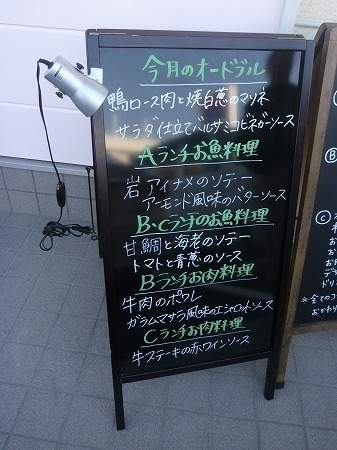 今月のオードブル
鴨ロース肉と焼白葱のマリネ
サラダ仕立てバルサミコビネガーソース
Aランチお魚料理
岩アイナメのソテー
アーモンド風味のバターソース
B・cランチのお魚料理
甘鯛と海老のソテー
トマトと青葱のソース
Bランチお肉料理
牛肉のポワレ
ガラムマサラ風味のエシャロットソース
Cランチお肉料理
牛ステーキの赤ワインソース
Ⓑ
Ⓒ